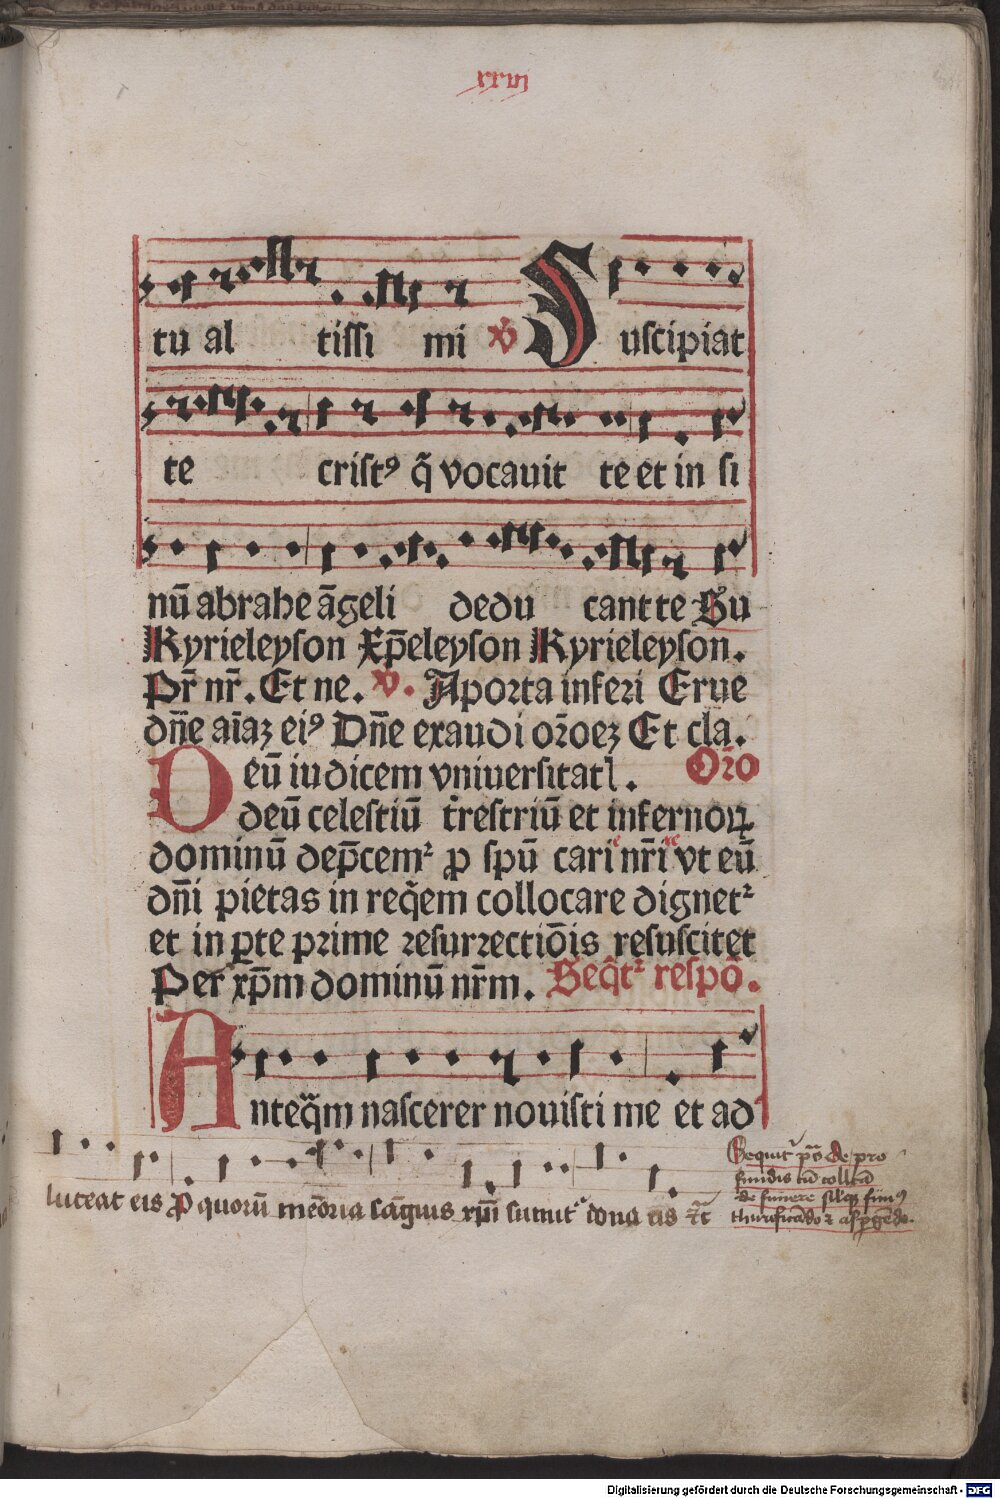 xxvi
tu al tissi mi v̄ Suscipiat
te crist⁹ q̄ vocauit te et in si
nū abrahe āgeli dedu cant te Su
Kyrieleyson Xp̄eleyson Kyrieleyson.
Pr̄ nr̄. Et ne. v̄. A porta inferi Erue
dn̄e aīaꝫ ei⁹ Dn̄e exaudi or̄oeꝫ Et cla.
Or̄o
Deū iudicem vniuersitatꝭ.
deū celestiū t̄restriū et infernoꝝ
dominū dep̄cemᷣ ꝓ spū cari nr̄i vt eū
dn̄i pietas in req̄em collocare dignetᷣ
et in ꝑte prime resurrectiōis resuscitet
Per xp̄m dominū nr̄m. Seq̄tᷣ respō.
Anteq̄m nascerer nouisti me et ad
luceat eis Pro quorū memōria sāguis xp̄i sumitᷣ dona eis
Sequitᷣ ps̄ de pro
fundis cū collcā
de funere silꝭqꝫ fun⁹
thurificādo ⁊ aspgēdo.
Digitalisierung gefördert durch die Deutsche Forschungsgemeinschaft - DFG